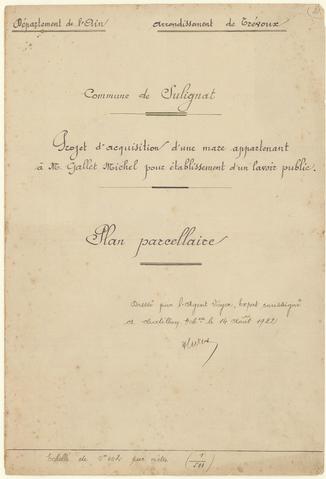 Département de l'Ain
Arrondissement de Trévoux
Commune de Sulignat
Projet d'acquisition d'une mare appartenant
à M. Gallet Michel pour établissement d'un lavoir public.
Plan parcellaire
Dressé par l'Agent Voyer, Expert soussigné
le 14 Août 1922
Echelle de 0.002 par mètre (1/500)